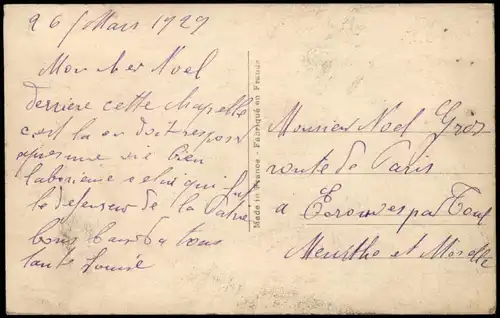 26 Mars 1929
Mon cher Noel
derriere cette chapelle
cest la ou doit repos
apres une vie bien
laborieuse celui qui fut
le defenseur de la Patrie
bons baisers a tous
tante Louise
Made in France - Fabriqué en France
Monsieur Noel Gros
route de Paris
a Ecrouves par Toul
Meurthe et Moselle